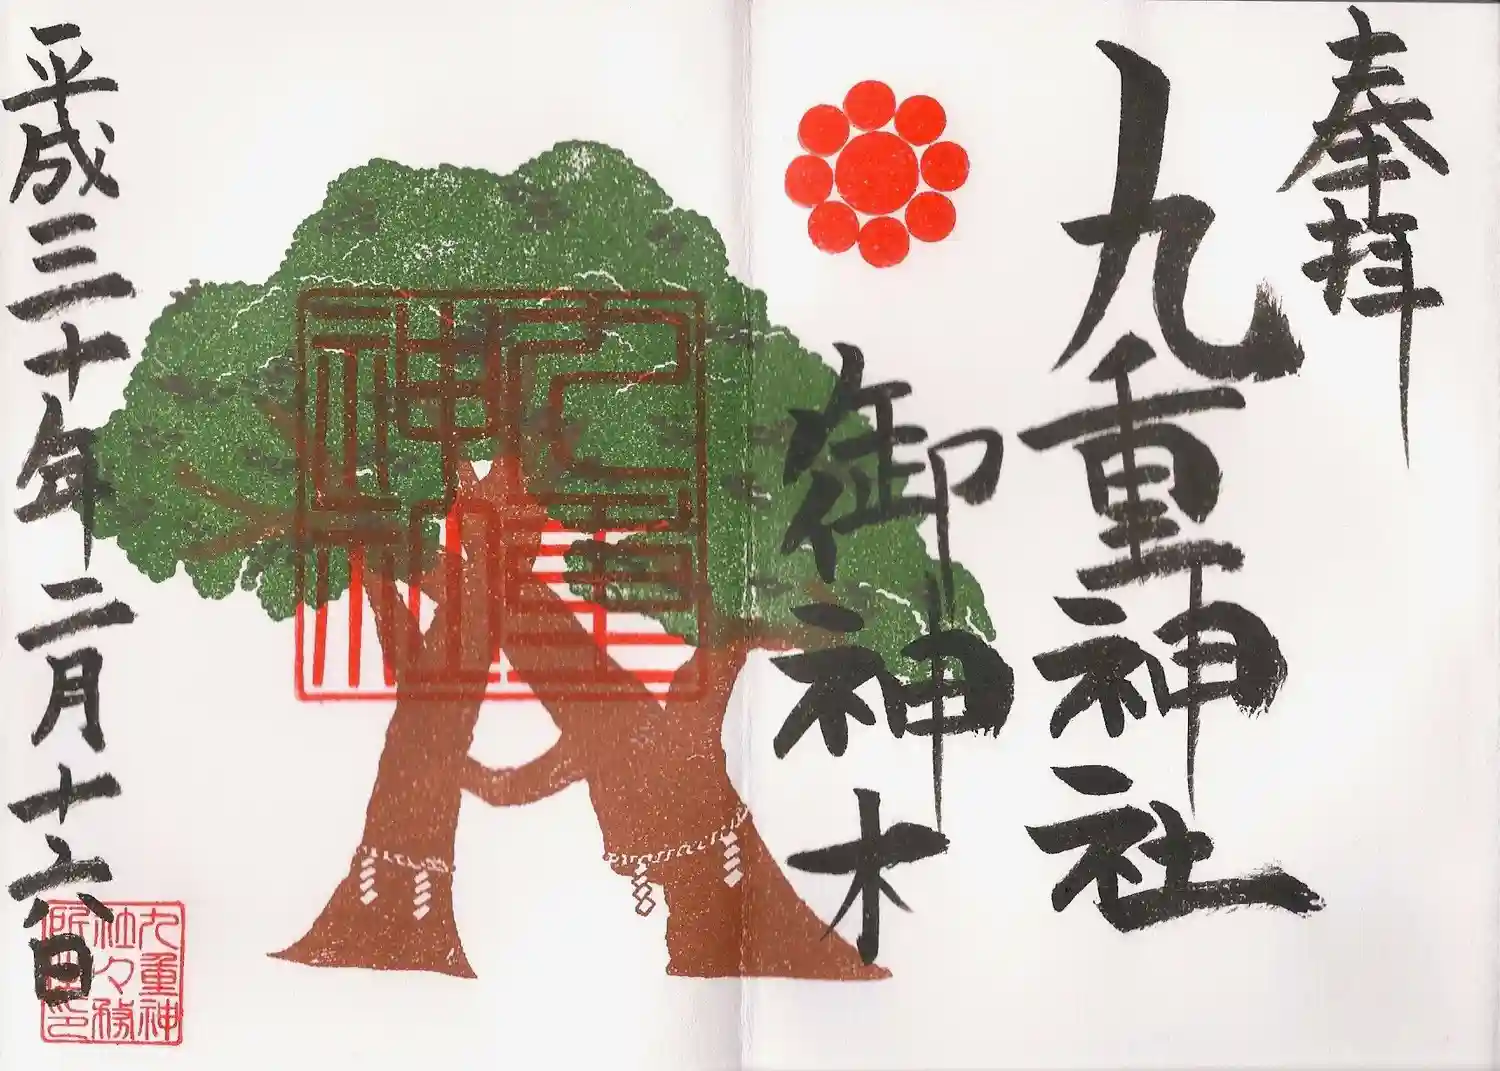 奉拝
九重神社
御神木
九重神社
平成三十年二月十六日
九重神
社々務
所之印